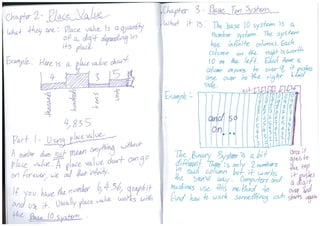 Chapter 2- Place Value
What they are: Place value is a quantity
of a digit depending in
its place.
Example: Here is a place value chart
4
3
5
thousand
hundreds
tens
4,835
Part 1- Using place value
A number does not mean anything without
place value. A place value chart can go
on forever, we call that infinity.
If you have the number 6,456, graph it
and use it. Usually place value works with
the Base 10 system.
Chapter 3- Base Ten System
What it is: The base 10 system is a
number system. The system
has infinite columns. Each
column on the right is worth
10 on the left. Each time a
column moves to over 9, it pushes
one over to the right
Example-
and so
on...
The Binary System is a bit
different. There is only 2 numbers
in each column but it works
the same way. Computers and
machines use this method to
find how to work something out.
Once it
goes to
the top
it pushes
a digit
over and
starts again